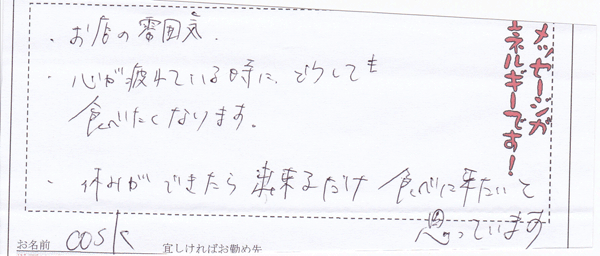 ・お店の雰囲気.
・心が疲れている時に、どうしても
食べたくなります。
・休みができたら 出来るだけ 食べに来たいと
思っています
メッセージが
エネルギーです!
お名前 cosk
宜しければお勤め先